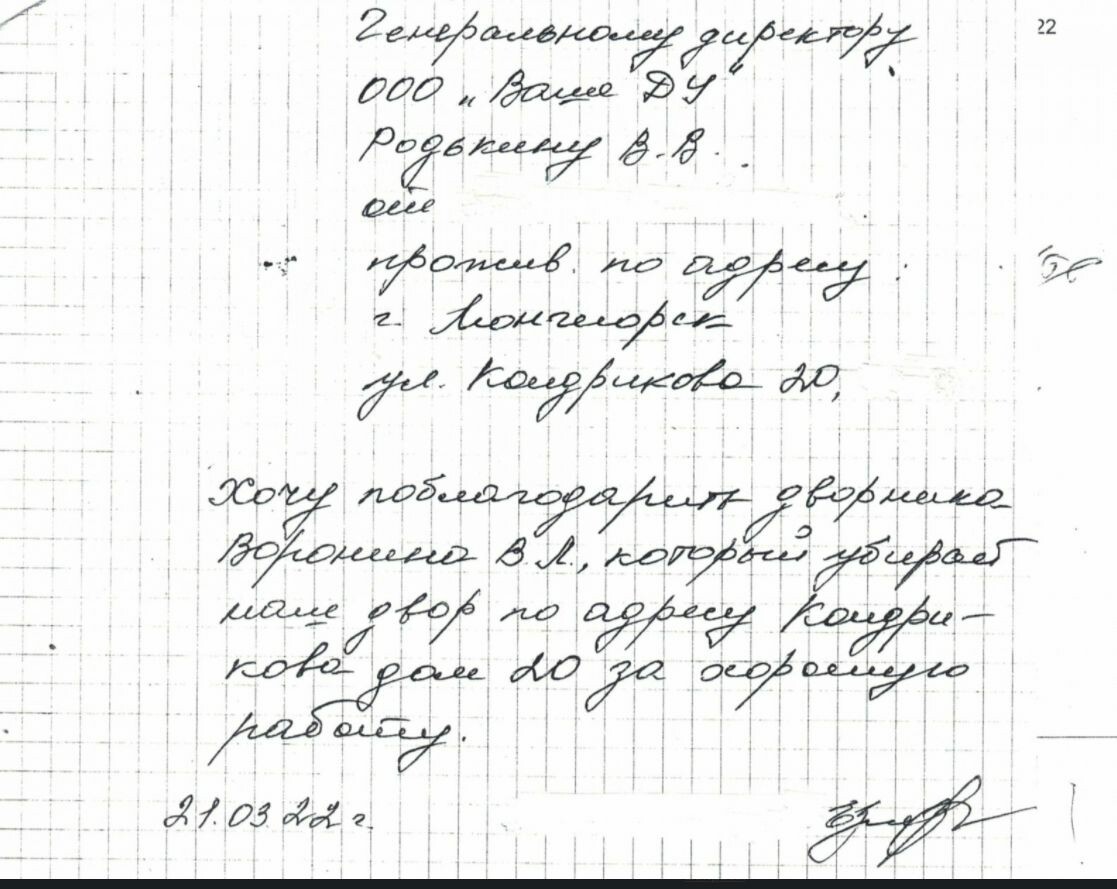 22
Генеральному директору
ООО „Ваше ДУ"
Родькину В.В.
от
прожив. по адресу:
г. Мончегорск
ул. Кондрикова 20,
Хочу поблагодарить дворника
Воронина В.Л., который убирает
наш двор по адресу Кондри-
кова дом 20 за хорошую
работу.
21.03.22 г.